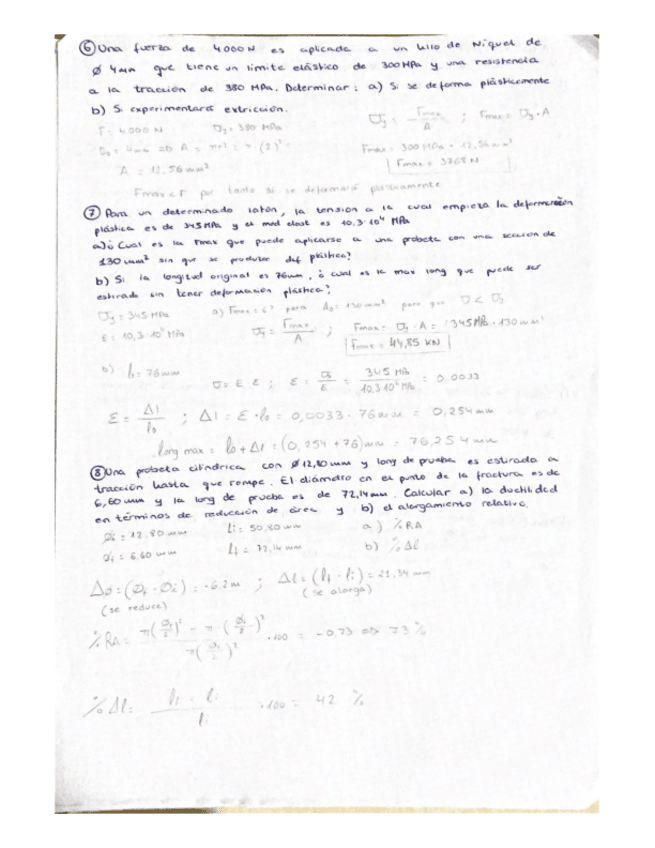 ⑥ Una fuerza de 4000N es aplicada a un hilo de Niquel de
ø 4mm que tiene un limite elástico de 300MPa y una resistencia
a la tracción de 380 MPa. Determinar: a) Si se deforma plásticamente
b) Si experimentará estricción.
F = 4000 N
σy = 380 MPa
σy = Fmax / A ; Fmax = σy · A
= 4mm ⇒ A = πr² = π · (2)²
A = 12,56 mm²
Fmax = 300MPa · 12,56 mm²
Fmax = 3768 N
Fmax < F por tanto si se deformará plásticamente
⑦ Para un determinado latón, la tensión a la cual empieza la deformación
plástica es de 345MPa y el mod elast es 10,3·10⁴ MPa
a) ¿Cual es la Fmax que puede aplicarse a una probeta con una sección de
130mm² sin que se produzca def plástica?
b) Si la longitud original es 76mm, ¿cual es la max long que puede ser
estirada sin tener deformación plástica?
σy = 345 MPa
a) Fmax = ¿? para A₀ = 130mm² para que σ < σy
E = 10,3·10⁴ MPa
σy = Fmax / A ; Fmax = σy · A = 345MPa · 130mm²
Fmax = 44,85 KN
b) l₀ = 76mm
σ = E·ε ; ε = σy / E = 345 MPa / 10,3·10⁴ MPa = 0,0033
ε = Δl / l₀ ; Δl = ε·l₀ = 0,0033 · 76mm = 0,254mm
long max = l₀ + Δl = (0,254 + 76)mm = 76,254 mm
⑧ Una probeta cilíndrica con ø12,80mm y long de prueba es estirada a
tracción hasta que rompe. El diámetro en el punto de la fractura es de
6,60mm y la long de prueba es de 72,14mm. Calcular a) la ductilidad
en términos de reducción de área y b) el alargamiento relativo.
øi = 12,80 mm
li = 50,80mm
a) %RA
øf = 6,60 mm
lf = 72,14 mm
b) %Δl
Δø = (øf - øi) = -6,2m ; Δl = (lf - li) = 21,34 mm
(se reduce)
(se alarga)
%RA = π(øf/2)² - π·(øi/2)² / π(øi/2)² · 100 = -0,73 73%
%Δl = lf - li / li · 100 = 42 %